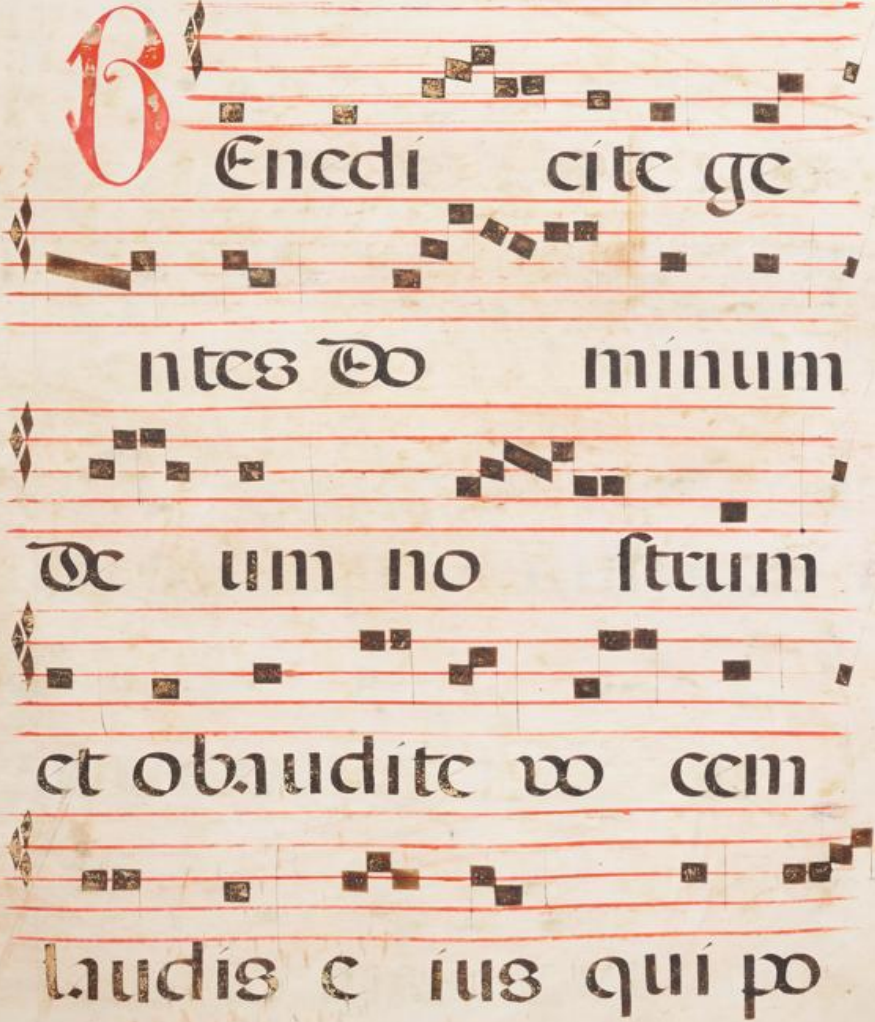 BEnedi cite ge
ntes Do minum
De um no strum
et obaudite vo cem
laudis e ius qui po